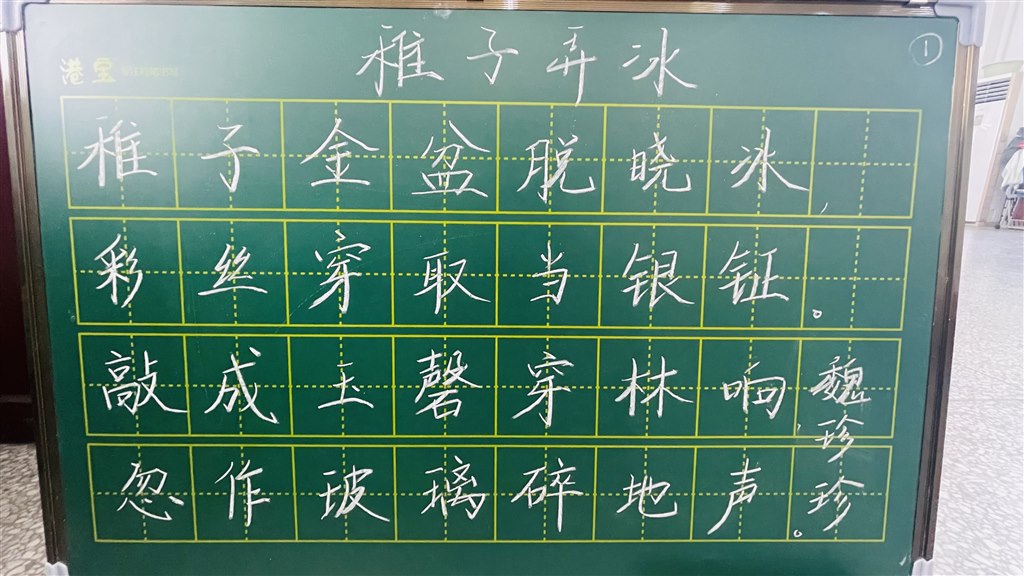 港宝
①
稚子弄冰
稚子金盆脱晓冰，
彩丝穿取当银钲。
敲成玉磬穿林响，
忽作玻璃碎地声。
魏珍珍